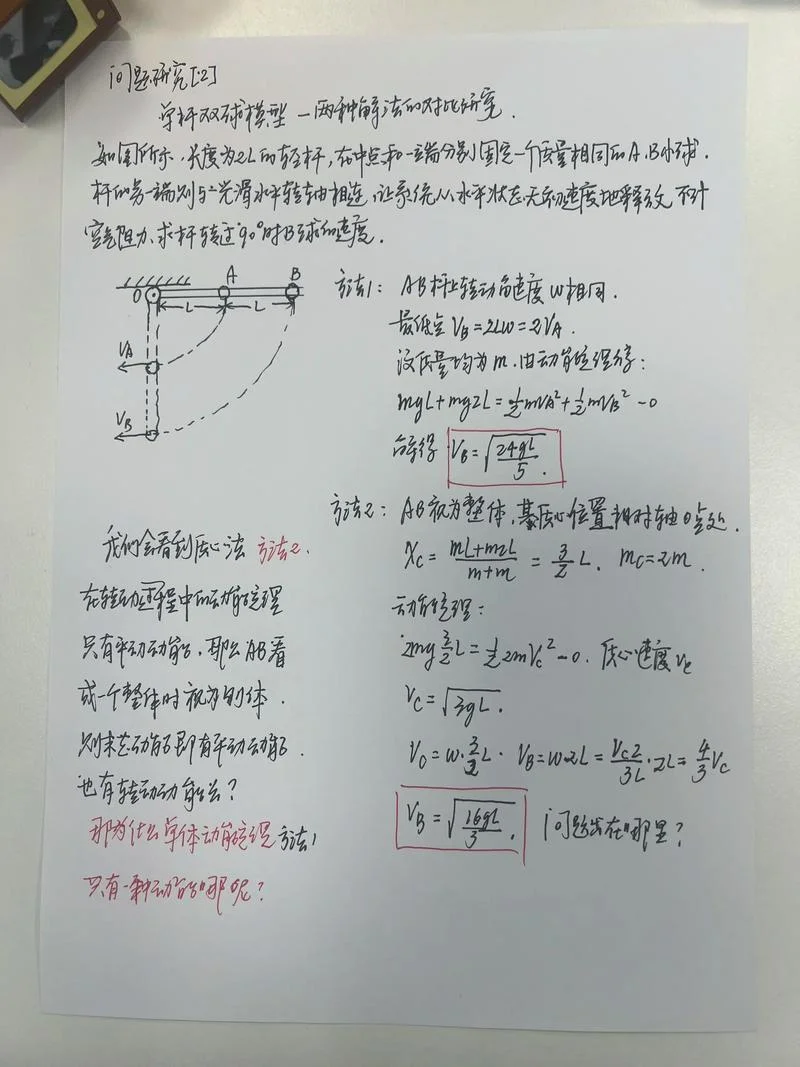 问题研究[2]
单杆双球模型—两种解法的对比研究.
如图所示.长度为2L的轻杆,在中点和一端分别固定一个质量相同的A、B小球.
杆的另一端则与一光滑水平转轴相连,让系统从水平状态无初速度地释放 不计
空气阻力.求杆转过90°时B球的速度.
O L A L B
VA
VB
方法1: AB杆上转动角速度ω相同.
最低点 VB=2Lω=2VA.
设质量均为m.由动能定理得:
mgL+mg2L=½mVA²+½mVB²-0
解得 VB=√(24gL/5).
方法2: AB视为整体,其质心位置相对轴O点处.
Xc=(mL+m2L)/(m+m)=3/2 L. mc=2m.
动能定理:
2mg 3/2 L=½2mVc²-0. 质心速度Vc
Vc=√3gL.
V0=ω·3/2 L. VB=ω·2L=Vc2/3L·2L=4/3 Vc
VB=√(16gL/3). 问题出在哪里?
我们会看到质心法 方法2.
在转动过程中的动能定理
只有平动动能,那么AB看
成一个整体时视为刚体.
则末态动能即有平动动能.
也有转动动能岂?
那为什么单体动能定理方法1
只有一种动能哪呢?